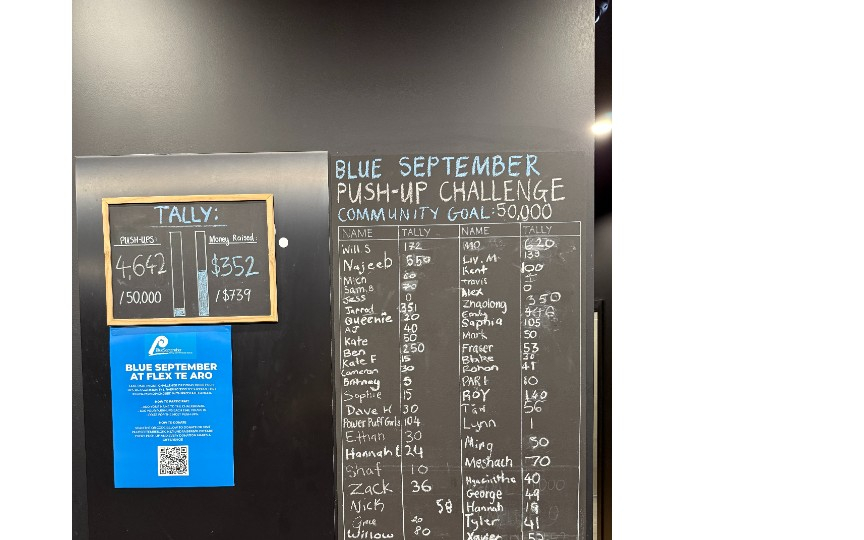 TALLY:
PUSH-UPS: Money Raised:
4,642 $352
/50,000 /$739
BlueSeptember
BLUE SEPTEMBER
AT FLEX TE ARO
HOW TO PARTICIPATE
HOW TO DONATE
BLUE SEPTEMBER
PUSH-UP CHALLENGE
COMMUNITY GOAL: 50,000
NAME TALLY NAME TALLY
Will S 172 MO 620
Najeeb 550 Liv. M 130
Mich 60 Kent 100
Sam.B 70 Travis
Jess 0 Alex 0
Jarrod 351 Zhaolong 350
Queenie 20 Emily
AJ 40 Saphia 105
Kate 50 Mark 50
Ben 250 Fraser 53
Kate F 15 Blake 30
Cameron 30 Ronan 41
Britney 5 PARI 10
Sophie 15 ROY 140
Dave H 30 56
Power Puff Girls 104 Lynn 1
Ethan 30 Ming 50
Hannah 24 Meshach 70
Shaf 10 Hyacinthe 40
Zack 36 George 49
Nick 58 Hannah
20 Tyler 41
Willow 80 Xavier 52